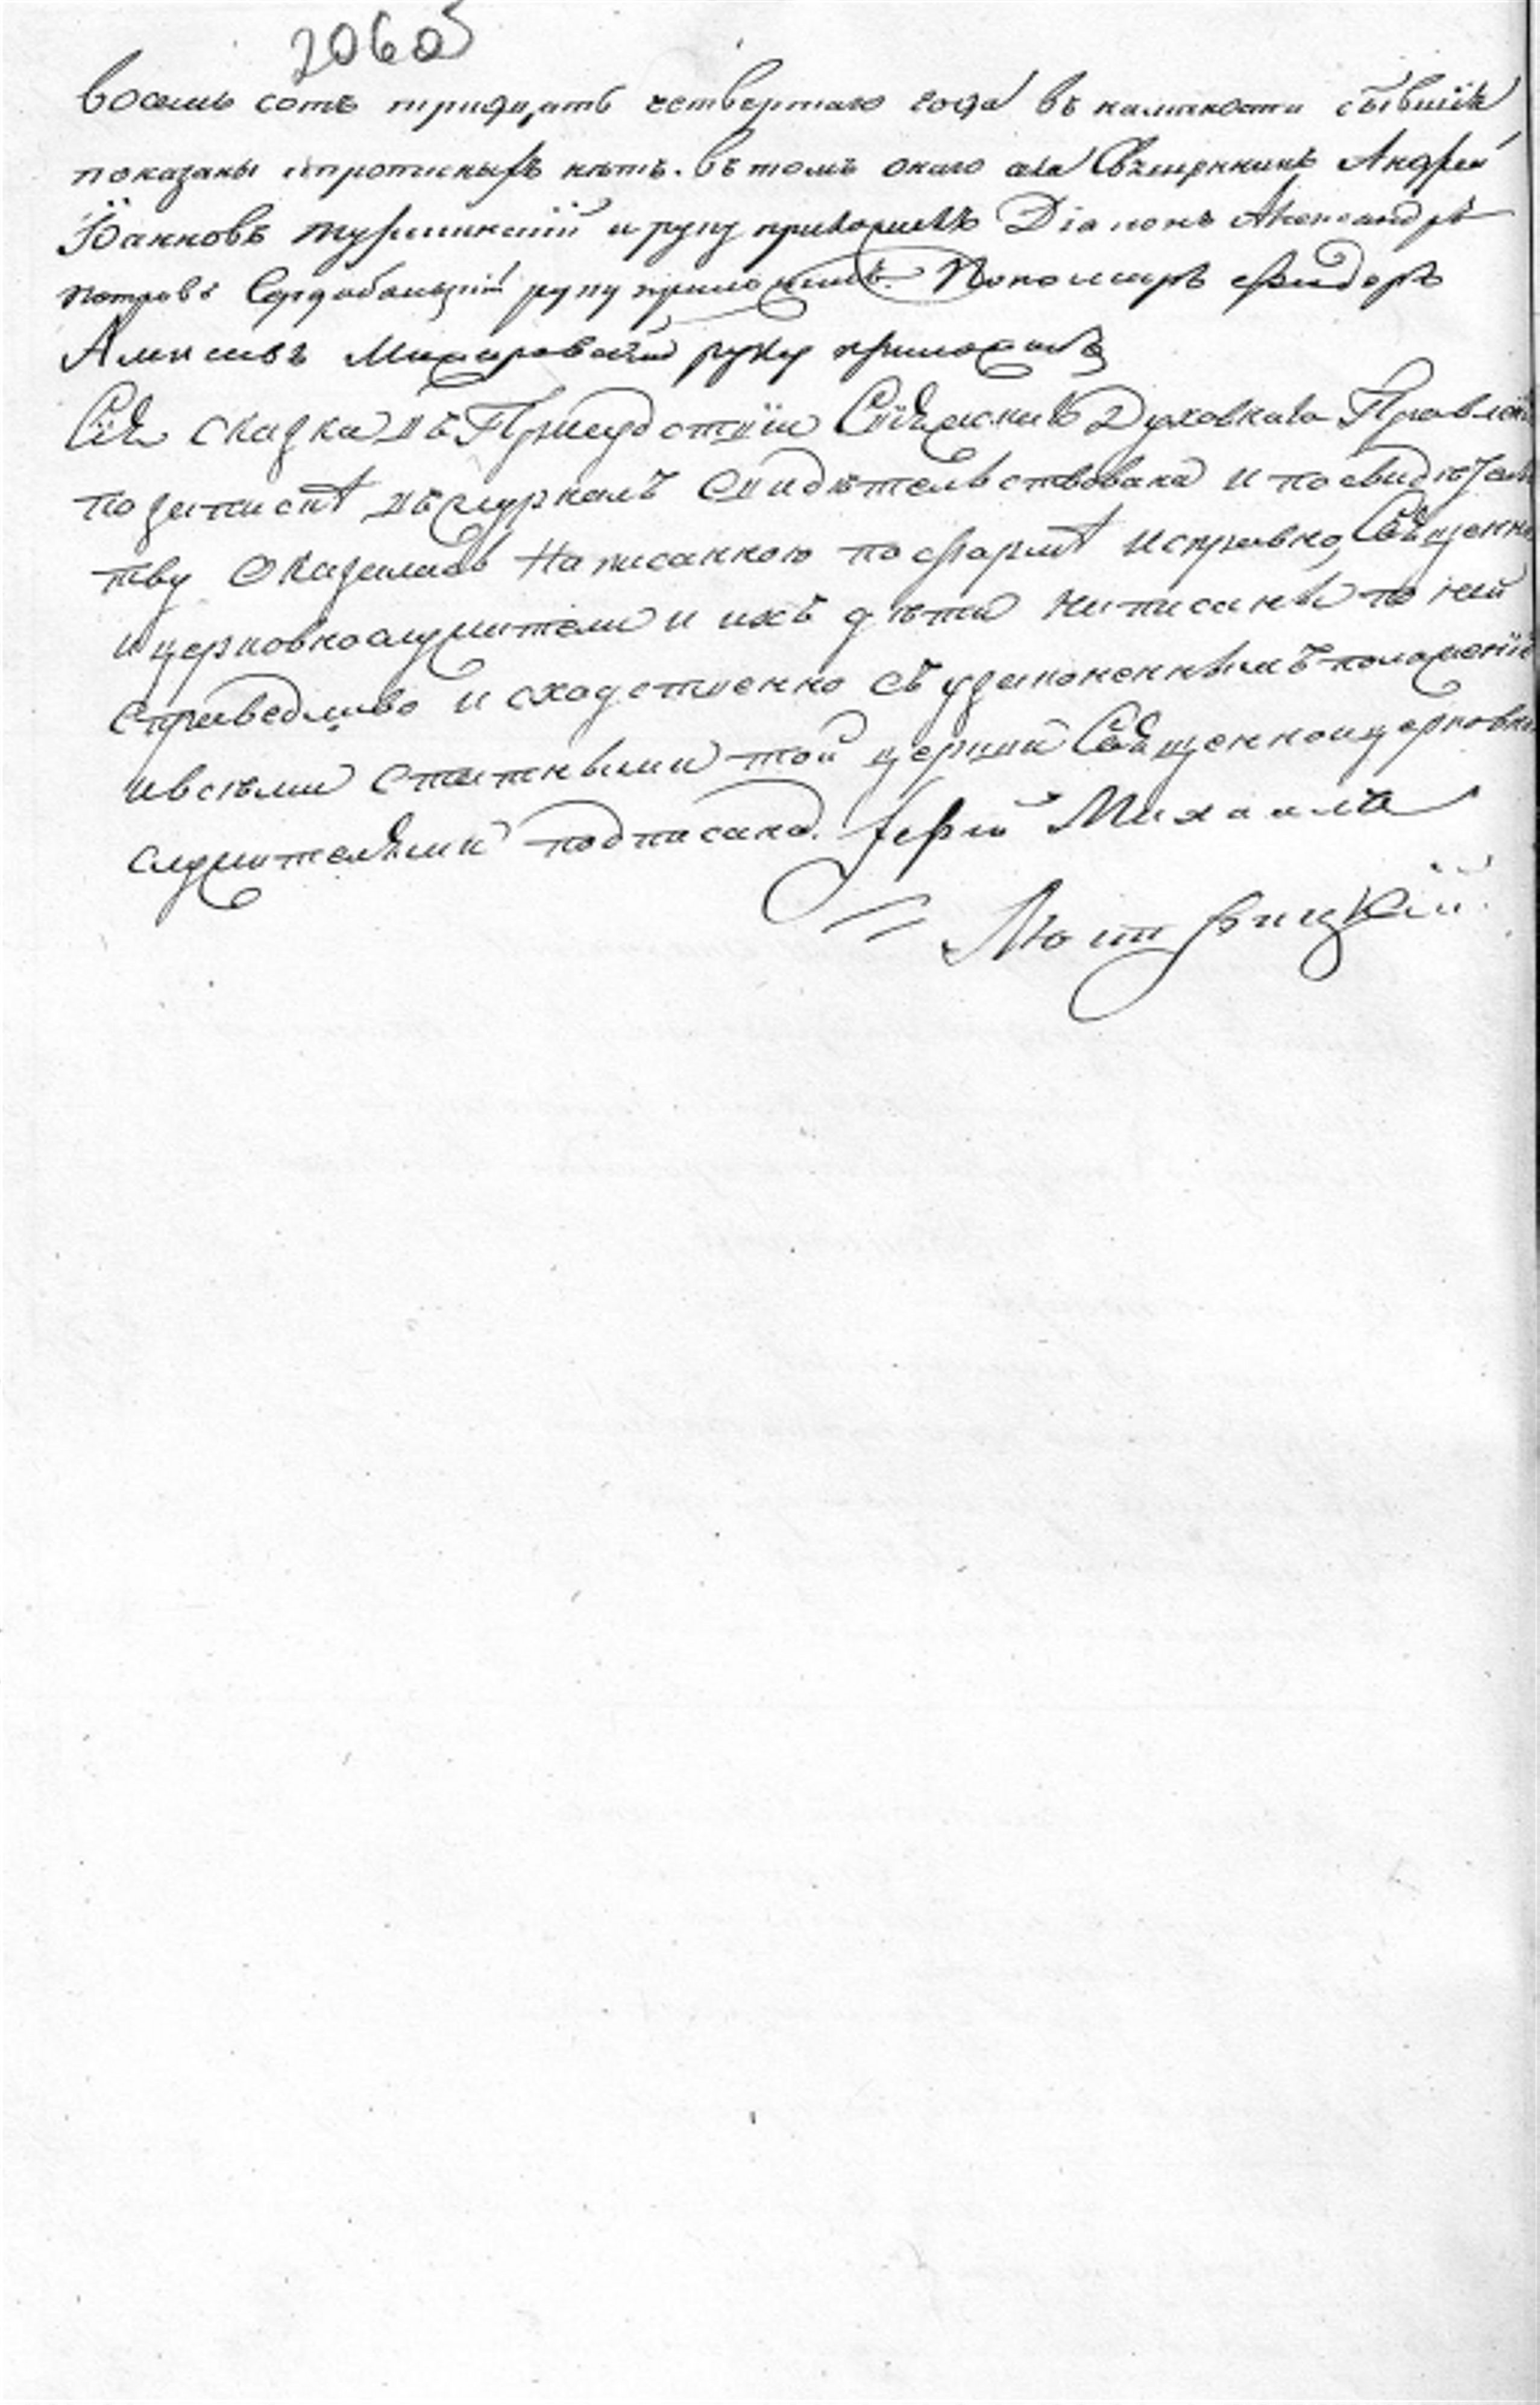 206об
восемь сотъ тридцать четвертаго года въ наличности бывшіе
показаны и прописныхъ нѣтъ. въ томъ оная Священникъ Андрей
Іоанновъ руку приложилъ Діаконъ Александръ
Петровъ руку приложилъ. Пономарь Фиодоръ
руку приложилъ
Сія сказка въ Присудствіи Духовнаго Правлені
по запискѣ въ журналъ свидѣтельствована и по свидѣтель
тву оказалась написанною по формѣ исправно, Священно
и церковнослужители и ихъ дѣти написаны по ней
справедливо и сходственно съ узаконеннымъ положеніе
и всѣми штатными той церкви Священноицерковно
служителями подписана. Іерей Михаилъ